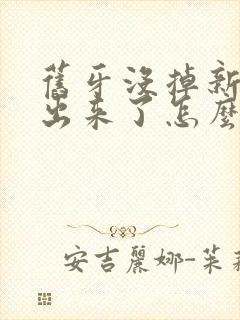 舊牙沒掉新
出來了怎麼
安吉麗娜-茱莉